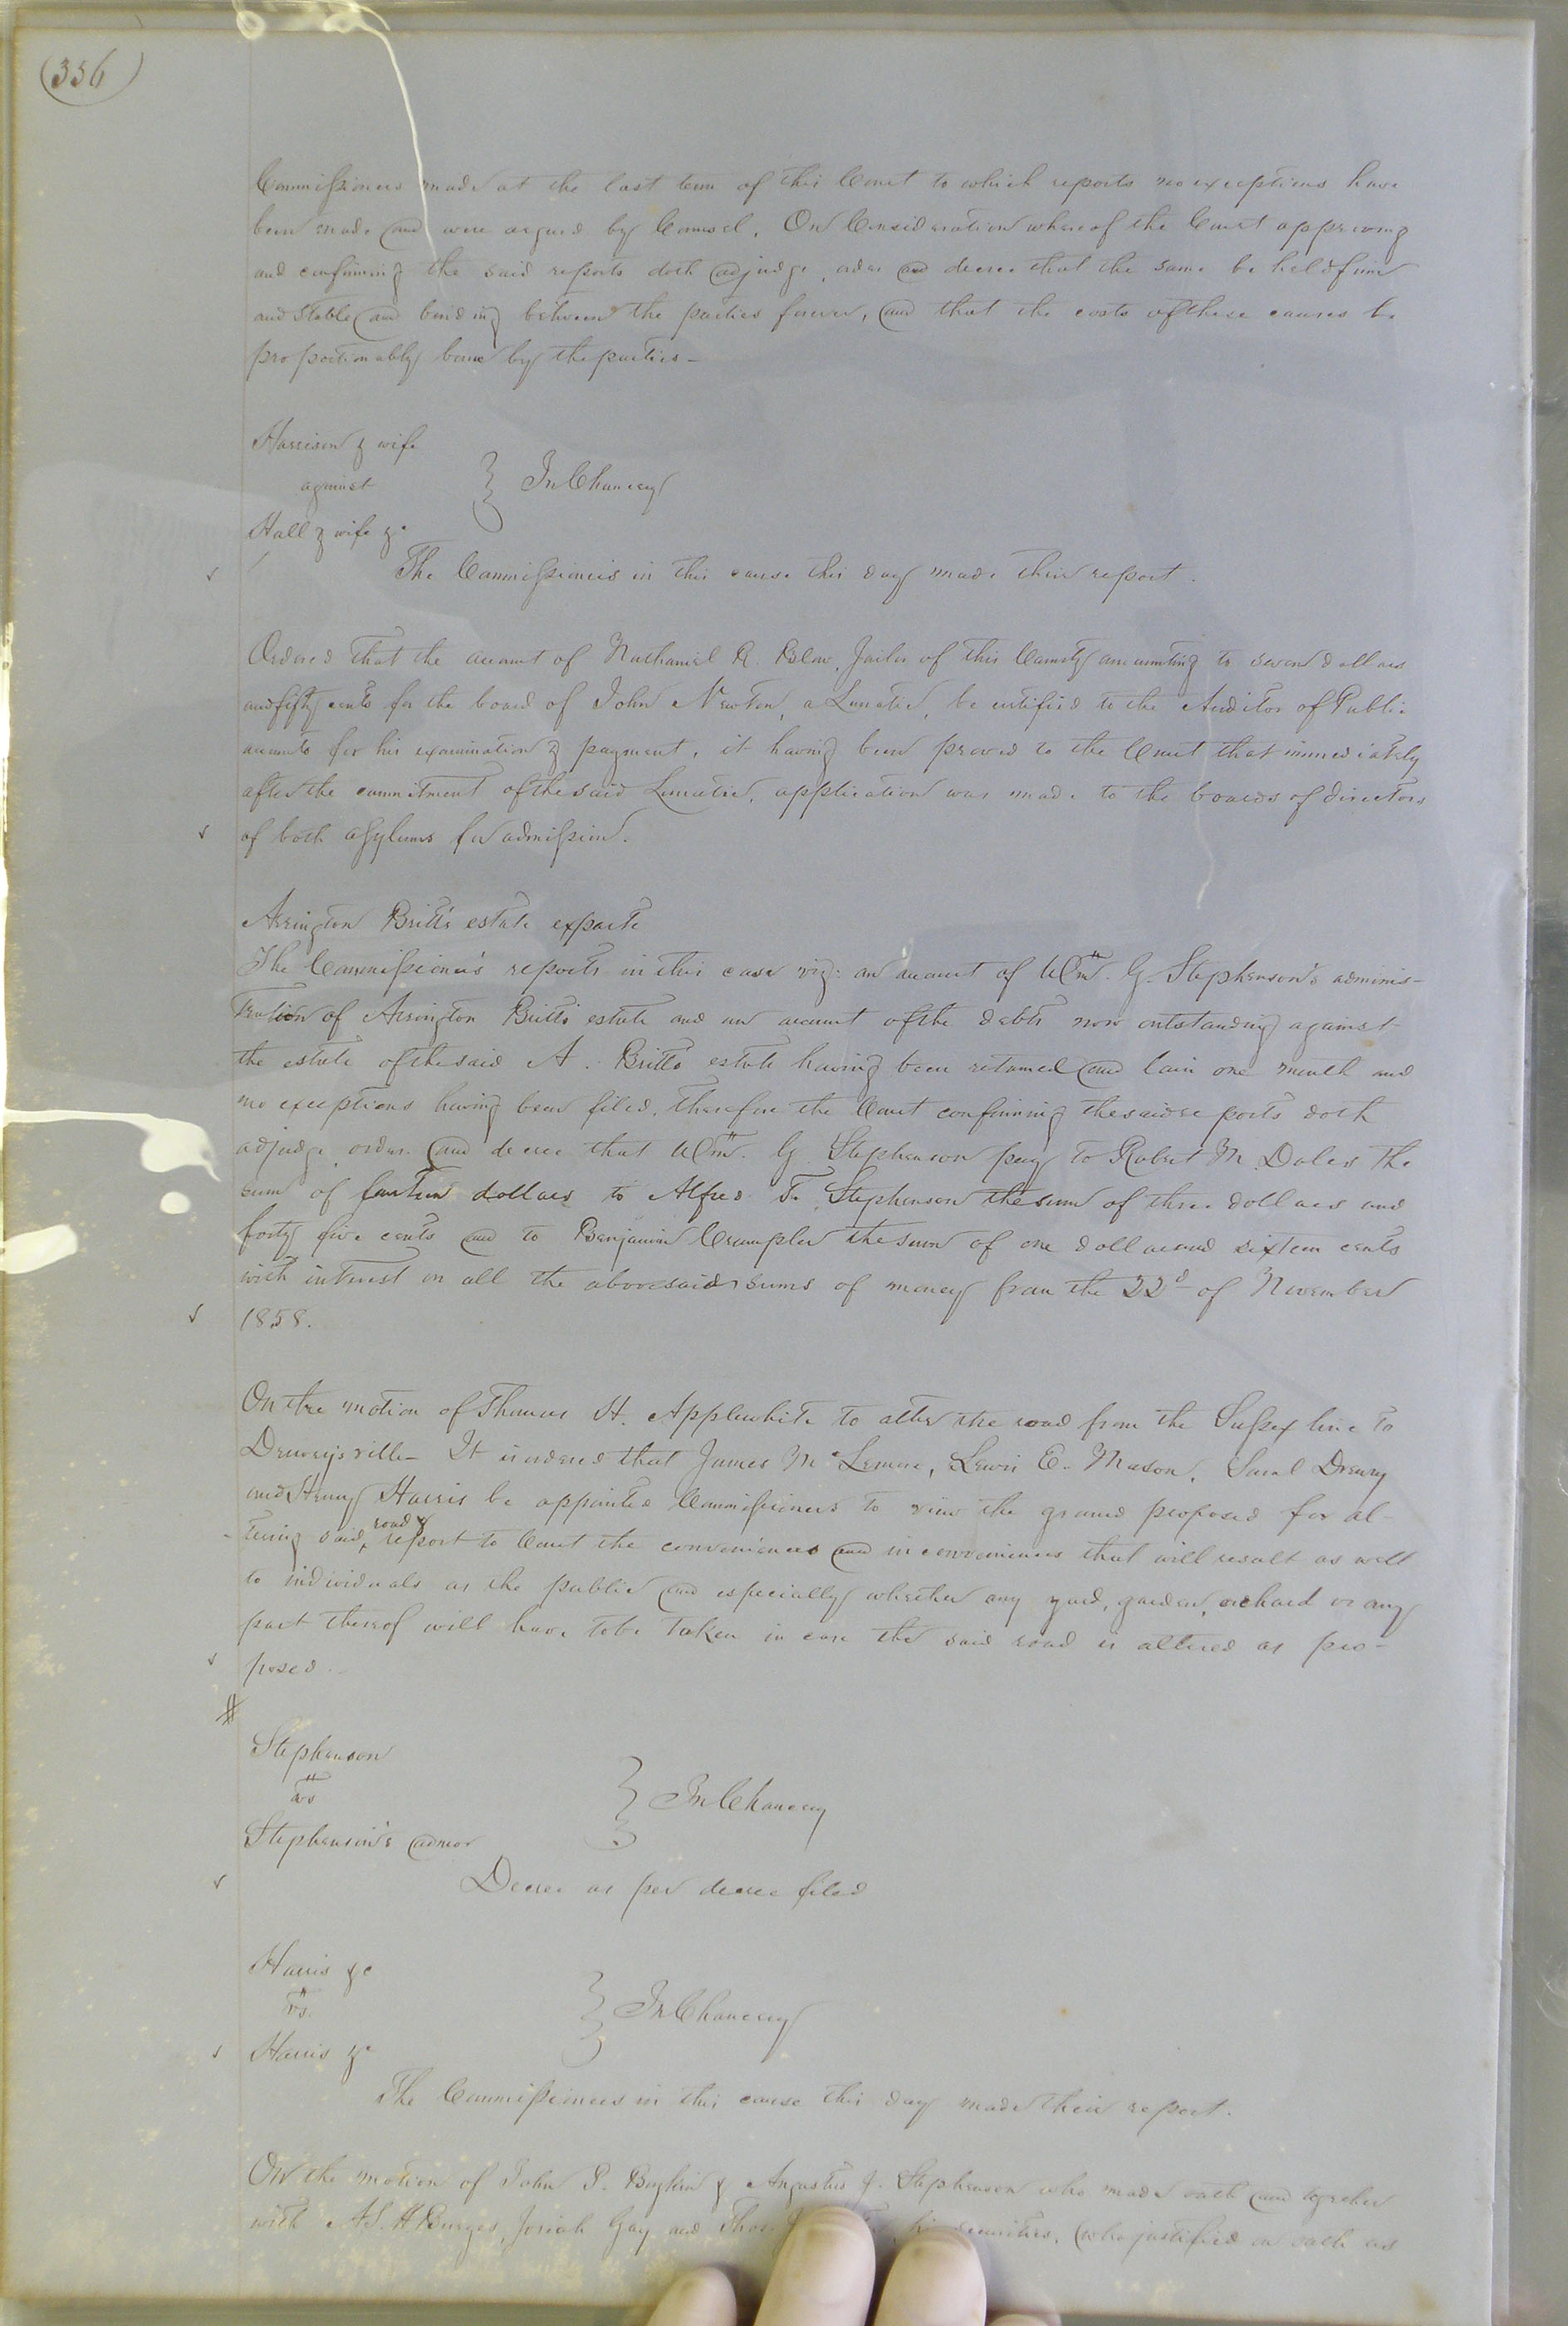 (356)
Commissioners made at the last term of this Court to which reports no exceptions have
been made and were argued by Counsel. On Consideration whereof the Court approving
and confirming the said reports doth adjudge, order and decree that the same be held firm
and stable and binding between the parties forever, and that the costs of these causes be
proportionably borne by the parties -
Harrison & wife
against } In Chancery
Hall & wife &c
The Commissioners in this cause this day made their report.
Ordered that the account of Nathaniel R. Blow, Jailor of this County amounting to seven dollars
and fifty cents for the board of John Newton, a Lunatic, be certified to the Auditor of Public
accounts for his examination & payment, it having been proved to the Court that immediately
after the commitment of the said Lunatic, application was made to the boards of directors
of both asylums for admission.
Arrington Britt's estate exparte
The Commissioner's reports in this case viz: an account of Wm. G. Stephenson's adminis-
tration of Arrington Britt's estate and an account of the debts now outstanding against
the estate of the said A. Britt's estate having been returned and lain one month and
no exceptions having been filed, therefore the Court confirming the said reports doth
adjudge order and decree that Wm. G Stephenson pay to Robert M. Doles the
sum of fourteen dollars to Alfred T. Stephenson the sum of three dollars and
forty five cents and to Benjamin Crumpler the sum of one dollar and sixteen cents
with interest on all the abovesaid sums of money from the 22d of November
1858.
On the motion of Thomas H. Applewhite to alter the road from the Sussex line to
Drewrysville - It is ordered that James McLemore, Lewis E. Mason, Saml Drewry
and Henry Harris be appointed Commissioners to view the ground proposed for al-
tering said road & report to Court the conveniences and inconveniences that will result as well
to individuals as the public and especially whether any yard, garden, orchard or any
part thereof will have to be taken in case the said road is altered as pro-
posed.
Stephenson
vs } In Chancery
Stephenson's admor
Decree as per decree filed
Harris &c
vs. } In Chancery
Harris &c
The Commissioners in this cause this day made their report.
On the motion of John P. Boykin & Augustus J. Stephenson who made oath and together
with A. S. H Burges, Josiah Gay and Thos. securities, (who justified on oath as